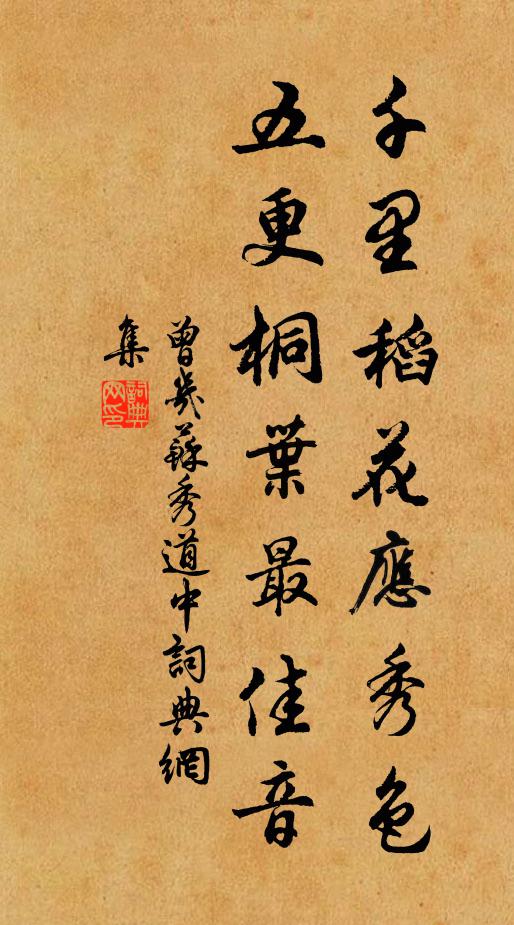 千里稻花應秀色
五更桐葉最佳音
曾幾蘇秀道中詞典網
集
詞典
网印